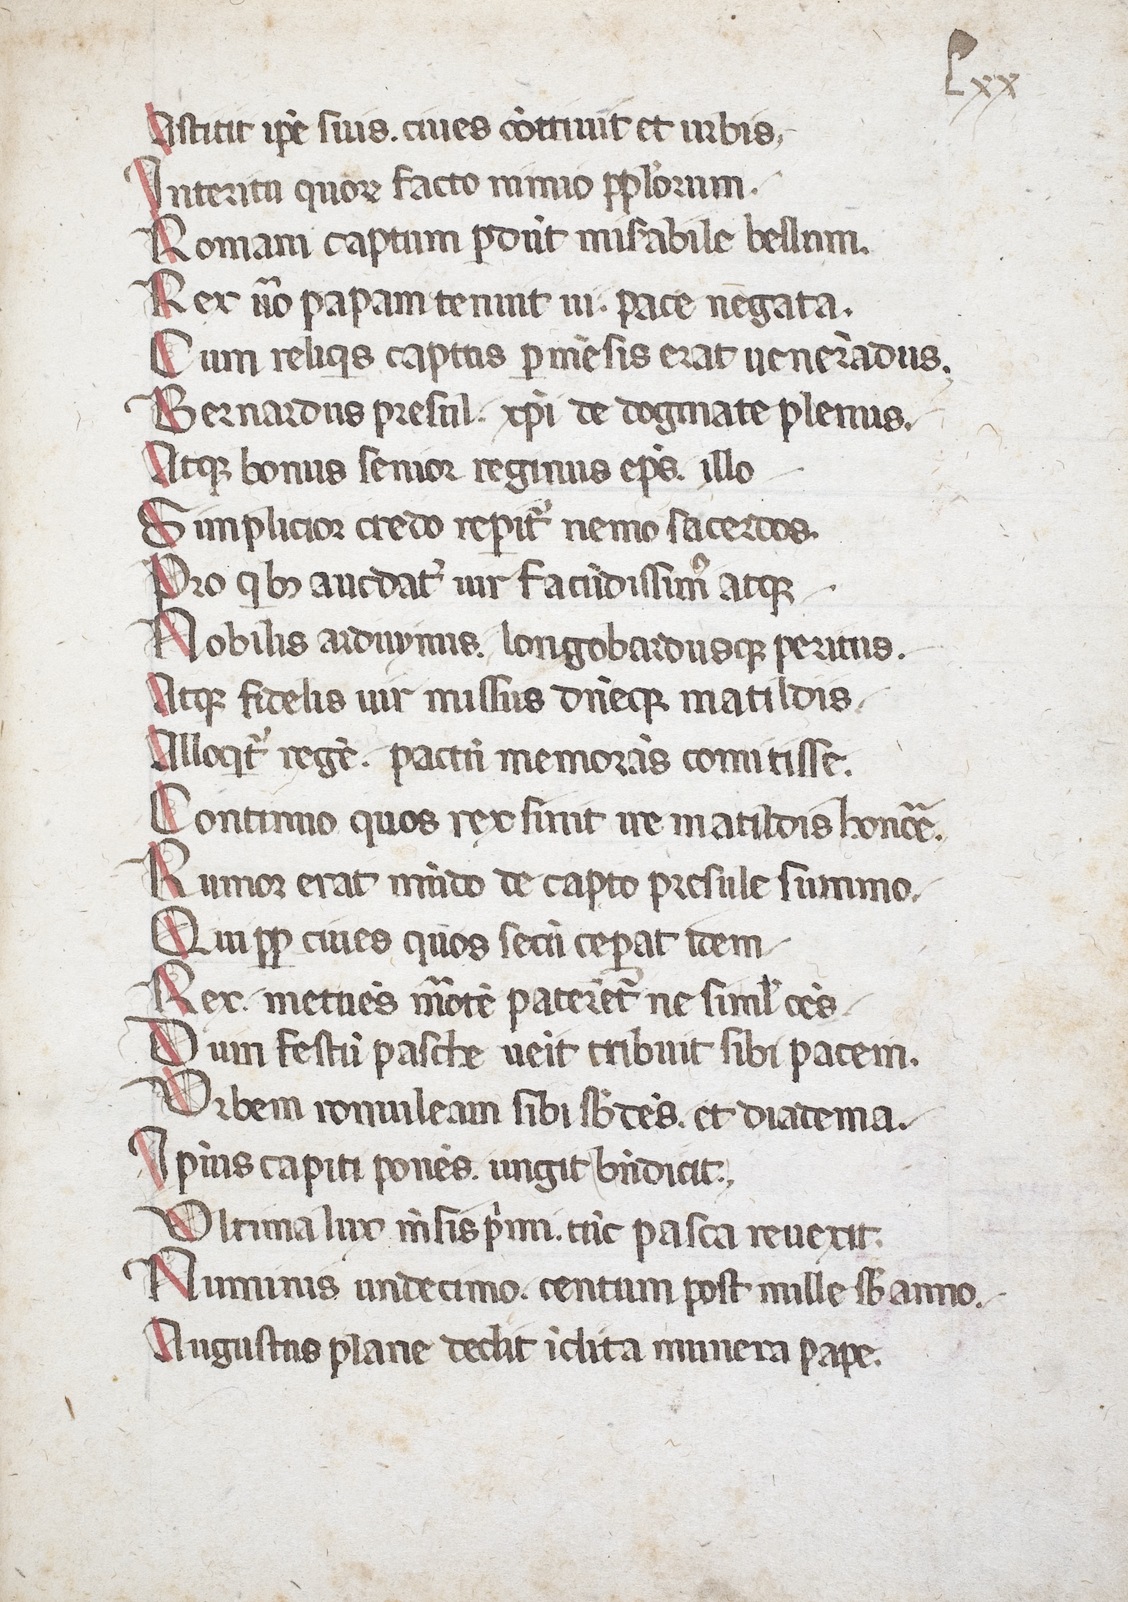 Lxx
Astitit ip̄e suis. ciues cōtriuit et urbis,
Interitu quoꝝ facto nimio pp̄lorum.
Romani captum ꝑdūt mis̄abile bellum.
Rex ūo papam tenuit ui. pace negata.
Cum reliq̄is captus ꝑmēsis erat uenerādus.
Bernardus presul. xp̄i de dogmate plenus.
Atqꝫ bonus senior reginus ep̄s. illo
Simplicior credo reꝑit᷑ nemo sacerdos.
Pro qibꝫ aucdat᷑ uir facūdissimꝰ atqꝫ
Nobilis arduynus. longobardusqꝫ peritus.
Atqꝫ fidelis uir missus dn̄eqꝫ matildis.
Alloqit᷑ regē. pactū memorās comitisse.
Continuo quos rex sinit ire matildis
Rumor erat mūdo de capto presule summo.
Qui ꝓꝑ ciues quos secū ceꝑat idem
Rex. metuēs paterēt᷑ ne simul oēs
Dum festū pasche ueīt tribuit sibi pacem.
Vrbem romuleam sibi sb̄dēs. et diatema.
Ipīus capiti ponēs. ungit bn̄dicit.
Vltima lux mn̄sis pimi. tūc pasca reuexit.
Numinis undecimo. centum post mille sb̄ anno.
Augustus plane dedit īclita munera pape.